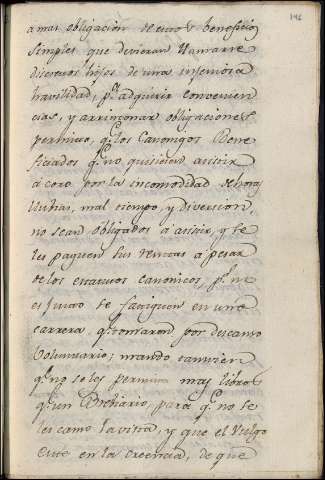 146
a mas obligacion de curas beneficios
simples que devieran llamarse
discretos hijos de una infeciosa
havilidad, pa. adquirir convenien
cias, y arrinconar obligaciones
permito, qe. los Canonigos Bene
ficiados qe. no quisieren assistir
a coro por la incomodidad de horas
lluvias, mal tiempo, y diversion,
no sean obligados a assistir, y se
les paguen sus rentas a pesar
de los estatutos canonicos, ps. no
es justo se fatiguen en una
carrera qe. tomaron por descanso
Voluntario; mando tamvien
qe. no se les permita mas libro
qe. un Breviario, para qe. no se
les canse la vista, y que el Vulgo
este en la creencia, de que